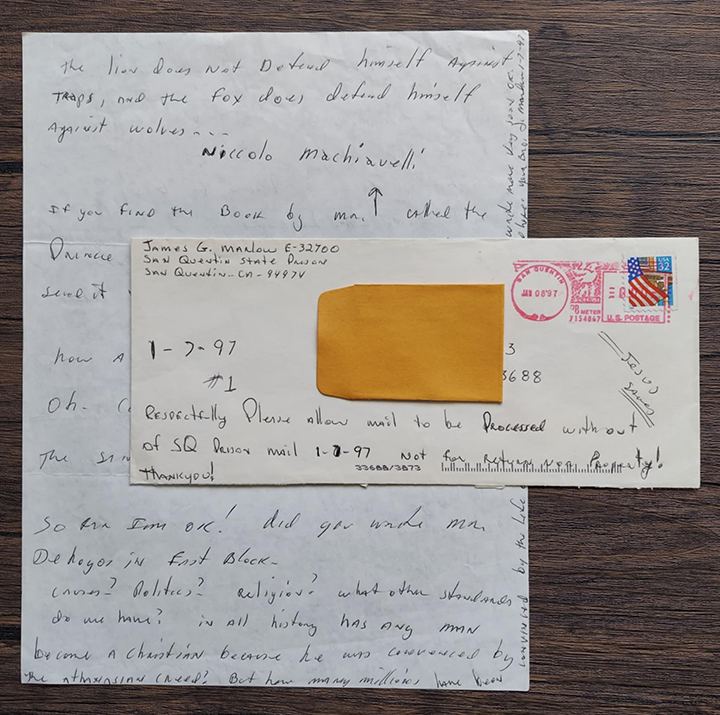 The lion does Not Defend himself Against
TRAPS, and the fox does defend himself
Against wolves - - -
Niccolo Machiavelli
If you find the Book by mr. called the
Prince
send it
how A
Oh.
The
JAMES G. MARLOW E-32700
SAN QUENTIN STATE PRISON
SAN QUENTIN - CA - 94974
SAN QUENTIN
JAN 08'97
PB METER
7154847
U.S. POSTAGE
USA 32
1-7-97
#1
3
3688
JESUS
SAVES
RESPECTFULLY Please Allow mail to be Processed without
of SQ PRISON mail 1-7-97 Not for RETURN Property!
THANKYOU!
33688/3873
So far I'm OK! did you write mr.
DeHoyos in East Block-
causes? Politics? Religion? what other standards
do we have? in all history has any man
become a christian because he was convinced by
the athanasian creed? But how many millions have been
convinced by the Life
write more very soon OK.
1-7-97